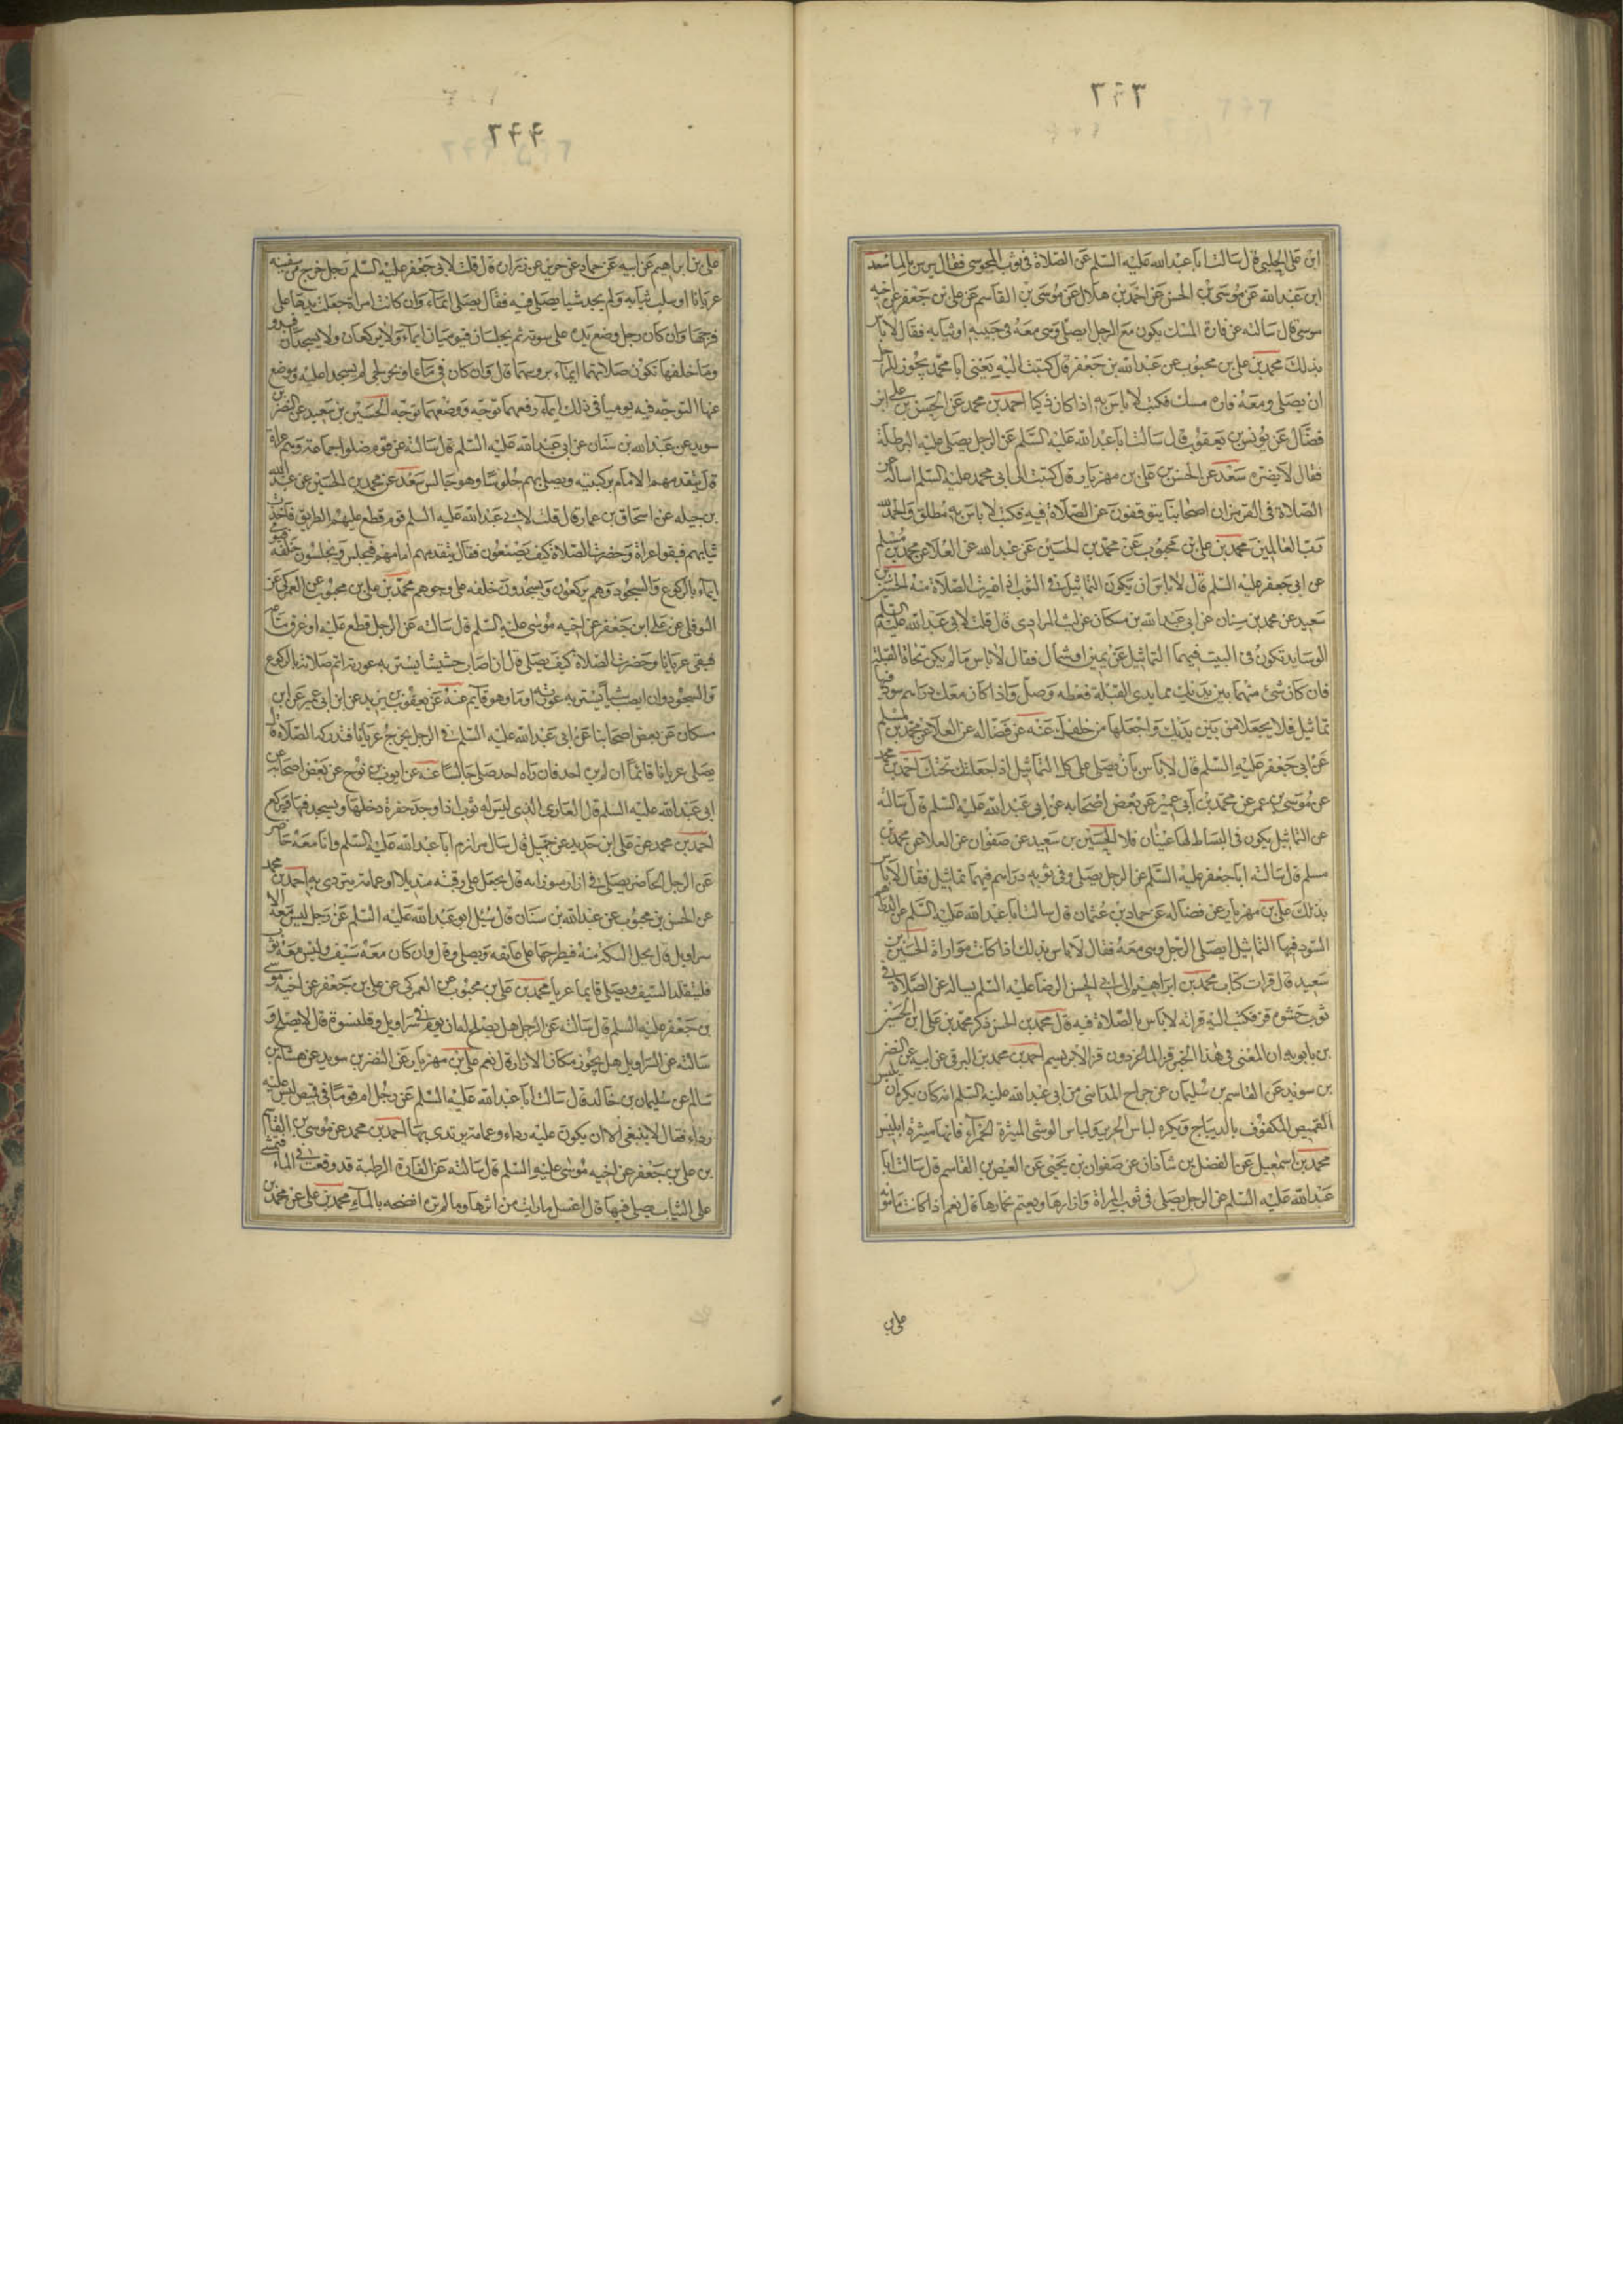 ٣٤٣
ابن على الحلبى قال سالت ابا عبد الله عليه السلم عن الصلاة فى ثوب المجوسى فقال يرش بالما سعد
ابن عبد الله عن موسى بن الحسن عن احمد بن هلال عن موسى بن القاسم عن على بن جعفر عن اخيه
موسى قال سالته عن فارة المسك يكون مع الرجل ايصلى وهى معه فى جيبه او ثيابه فقال لا باس
بذلك محمد بن على بن محبوب عن عبد الله بن جعفر قال كتبت اليه يعنى ابا محمد يجوز للرجل
ان يصلى ومعه فاره مسك فكتب لا باس به اذا كان ذكيا احمد بن محمد عن الحسن بن على ابن
فضال عن يونس بن يعقوب قال سالت ابا عبد الله عليه السلم عن الرجل يصلى عليه البرطلة
فقال لا يضره سعد عن الحسن بن على بن مهزيار قال كتبت الى ابى محمد عليه السلم اساله عن
الصلاة فى القرمز ان اصحابنا يتوقفون عن الصلاة فيه فكتب لا باس به مطلق والحمد لله
رب العالمين محمد بن على بن محبوب عن محمد بن الحسين عن عبد الله عن العلا عن محمد بن مسلم
عن ابى جعفر عليه السلم قال لا باس ان تكون التماثيل فى الثوب اذا غيرت الصلاة منه الحسين بن
سعيد عن محمد بن سنان عن ابى عبد الله بن مسكان عن ليث المرادى قال قلت لابى عبد الله عليه السلم
الوسايد تكون فى البيت فيهما التماثيل عن يمين او شمال فقال لا باس ما لم يكن تجاه القبلة
فان كان شئ منهما بين يديك مما يلى القبلة فغطه وصل واذا كان معك دراهم سود فيها
تماثيل فلا يجعلا من بين يديك واجعلها من خلفك عنه عن فضاله عن العلا عن محمد بن مسلم
عن ابى جعفر عليه السلم قال لا باس بان يصلى على كل التماثيل اذا جعلتك تحتك احمد بن محمد
عن موسى بن عمر عن محمد بن ابى عمير عن بعض اصحابه عن ابى عبد الله عليه السلم قال سالته
عن التماثيل يكون فى البساط لها عينان فلا الحسين بن سعيد عن صفوان عن العلا عن محمد بن
مسلم قال سالت ابا جعفر عليه السلم عن الرجل يصلى وفى ثوبه دراهم فيها تماثيل فقال لا باس
بذلك على بن مهزيار عن فضاله عن حماد بن عثمان قال سالت ابا عبد الله عليه السلم عن الدراهم
السود فيها التماثيل ايصلى الرجل وهى معه فقال لا باس بذلك اذا كانت مواراة الحسين بن
سعيد قال قرات كتاب محمد بن ابراهيم الى ابى الحسن الرضا عليه السلم يساله عن الصلاة فى
ثوب حشوه قز فكتب اليه قراته لا باس بالصلاة فيه قال محمد بن الحسن ذكر محمد بن على ابن الحسين
بن بابويه ان المعنى فى هذا الخبر قز الماعز دون قز الابريسم احمد بن محمد بن البرقى عن ابيه عن النضر
بن سويد عن القاسم بن سليمان عن جراح المداينى عن ابى عبد الله عليه السلم انه كان يكره ان يلبس
القميص المكفوف بالديباج ويكره لباس الحرير ولباس الوشى الميثرة الحمراء فانها ميثرة ابليس
محمد بن اسمعيل عن الفضل بن شاذان عن صفوان بن يحيى عن العيص بن القاسم قال سالت ابا
عبد الله عليه السلم عن الرجل يصلى فى ثوب المراة وازارها ويعتم بخمارها قال نعم اذا كانت مامونه
على بن
٣٤٤
على بن ابراهيم عن ابيه عن حماد عن حريز عن زراره قال قلت لابى جعفر عليه السلم رجل خرج من سفينه
عريانا او سلب ثيابه ولم يجد شيا يصلى فيه فقال يصلى ايماء وان كانت امراة جعلت يدها على
فرجها وان كان رجل وضع يده على سوته ثم يجلسان فيوميان ايماء ولا يركعان ولا يسجدان فيبدو
وما خلفهما تكون صلاتهما ايماء بروسهما قال وان كان فى ماء او بحر لجى لم يسجدا عليه وموضع
عنهما التوجه فيه يوميا فى ذلك ايماء رفعهما توجه ووضعهما توجه الحسين بن سعيد عن النضر بن
سويد عن عبد الله بن سنان عن ابى عبد الله عليه السلم قال سالته عن قوم صلوا جماعة وهم عراة
قال يتقدمهم الامام بركبتيه ويصلى بهم جلوسا وهو جالس سعد عن محمد بن الحسين عن عبد الله
بن جبله عن اسحاق بن عمار قال قلت لابى عبد الله عليه السلم قوم قطع عليهم الطريق فاخذت
ثيابهم فبقوا عراة وحضرت الصلاة كيف يصنعون فقال يتقدمهم امامهم فيجلس ويجلسون خلفه فيومى
ايماء بالركوع والسجود وهم يركعون ويسجدون خلفه على وجوههم محمد بن على بن محبوب عن العمركى عن
النوفلى عن على ابن جعفر عن اخيه موسى عليه السلم قال سالته عن الرجل قطع عليه او غرق متاعه
فبقى عريانا وحضرت الصلاة كيف يصلى قال ان اصاب حشيشا يستر به عورته اتم صلاته بالركوع
والسجود وان لم يصب شيأ يستر به عورته اوما وهو قايم عنه عن يعقوب بن يزيد عن ابن ابى عمير عن ابن
مسكان عن بعض اصحابنا عن ابى عبد الله عليه السلم فى الرجل يخرج عريانا فتدركه الصلاة قال
يصلى عريانا قائما ان لم يره احد فان راه احد صلى جالسا عنه عن ايوب بن نوح عن بعض اصحابه عن
ابى عبد الله عليه السلم قال العارى الذى ليس له ثوب اذا وجد حفرة دخلها ويسجد فيها فركع
احمد بن محمد عن على ابن حديد عن جميل قال سال مرازم ابا عبد الله عليه السلم وانا معه حاضر
عن الرجل الحاضر يصلى فى ازار موتزرا به قال يجعل على رقبته منديلا او عمامة يتردى به احمد بن محمد
عن الحسن بن محبوب عن عبد الله بن سنان قال سئل ابو عبد الله عليه السلم عن رجل ليس معه الا
سراويل قال يحل التكة منه فيطرحها على عاتقه ويصلى وقال وان كان معه سيف وليس معه ثوب
فليتقلد السيف ويصلى قايما عريا محمد بن على بن محبوب عن العمركى عن على بن جعفر عن اخيه موسى
بن جعفر عليه السلم قال سالته عن الرجل هل يصلح له ان يوم فى سراويل وقلنسوة قال لا يصلح و
سالته عن السراويل هل يجوز مكان الازار قال نعم على بن مهزيار عن النضر بن سويد عن هشام بن
سالم عن سليمان بن خالد قال سالت ابا عبد الله عليه السلم عن رجل ام قوما فى قميص ليس عليه
رداء فقال لا ينبغى الا ان يكون عليه رداء وعمامة يرتدى بها احمد بن محمد عن موسى بن القاسم
بن على بن جعفر عن اخيه موسى عليه السلم قال سالته عن الفارة الرطبة قد وقعت فى الماء فتمشى
على الثياب يصلى فيها قال اغسل ما رايت من اثرها وما لم تره انضحه بالماء محمد بن على عن محمد بن